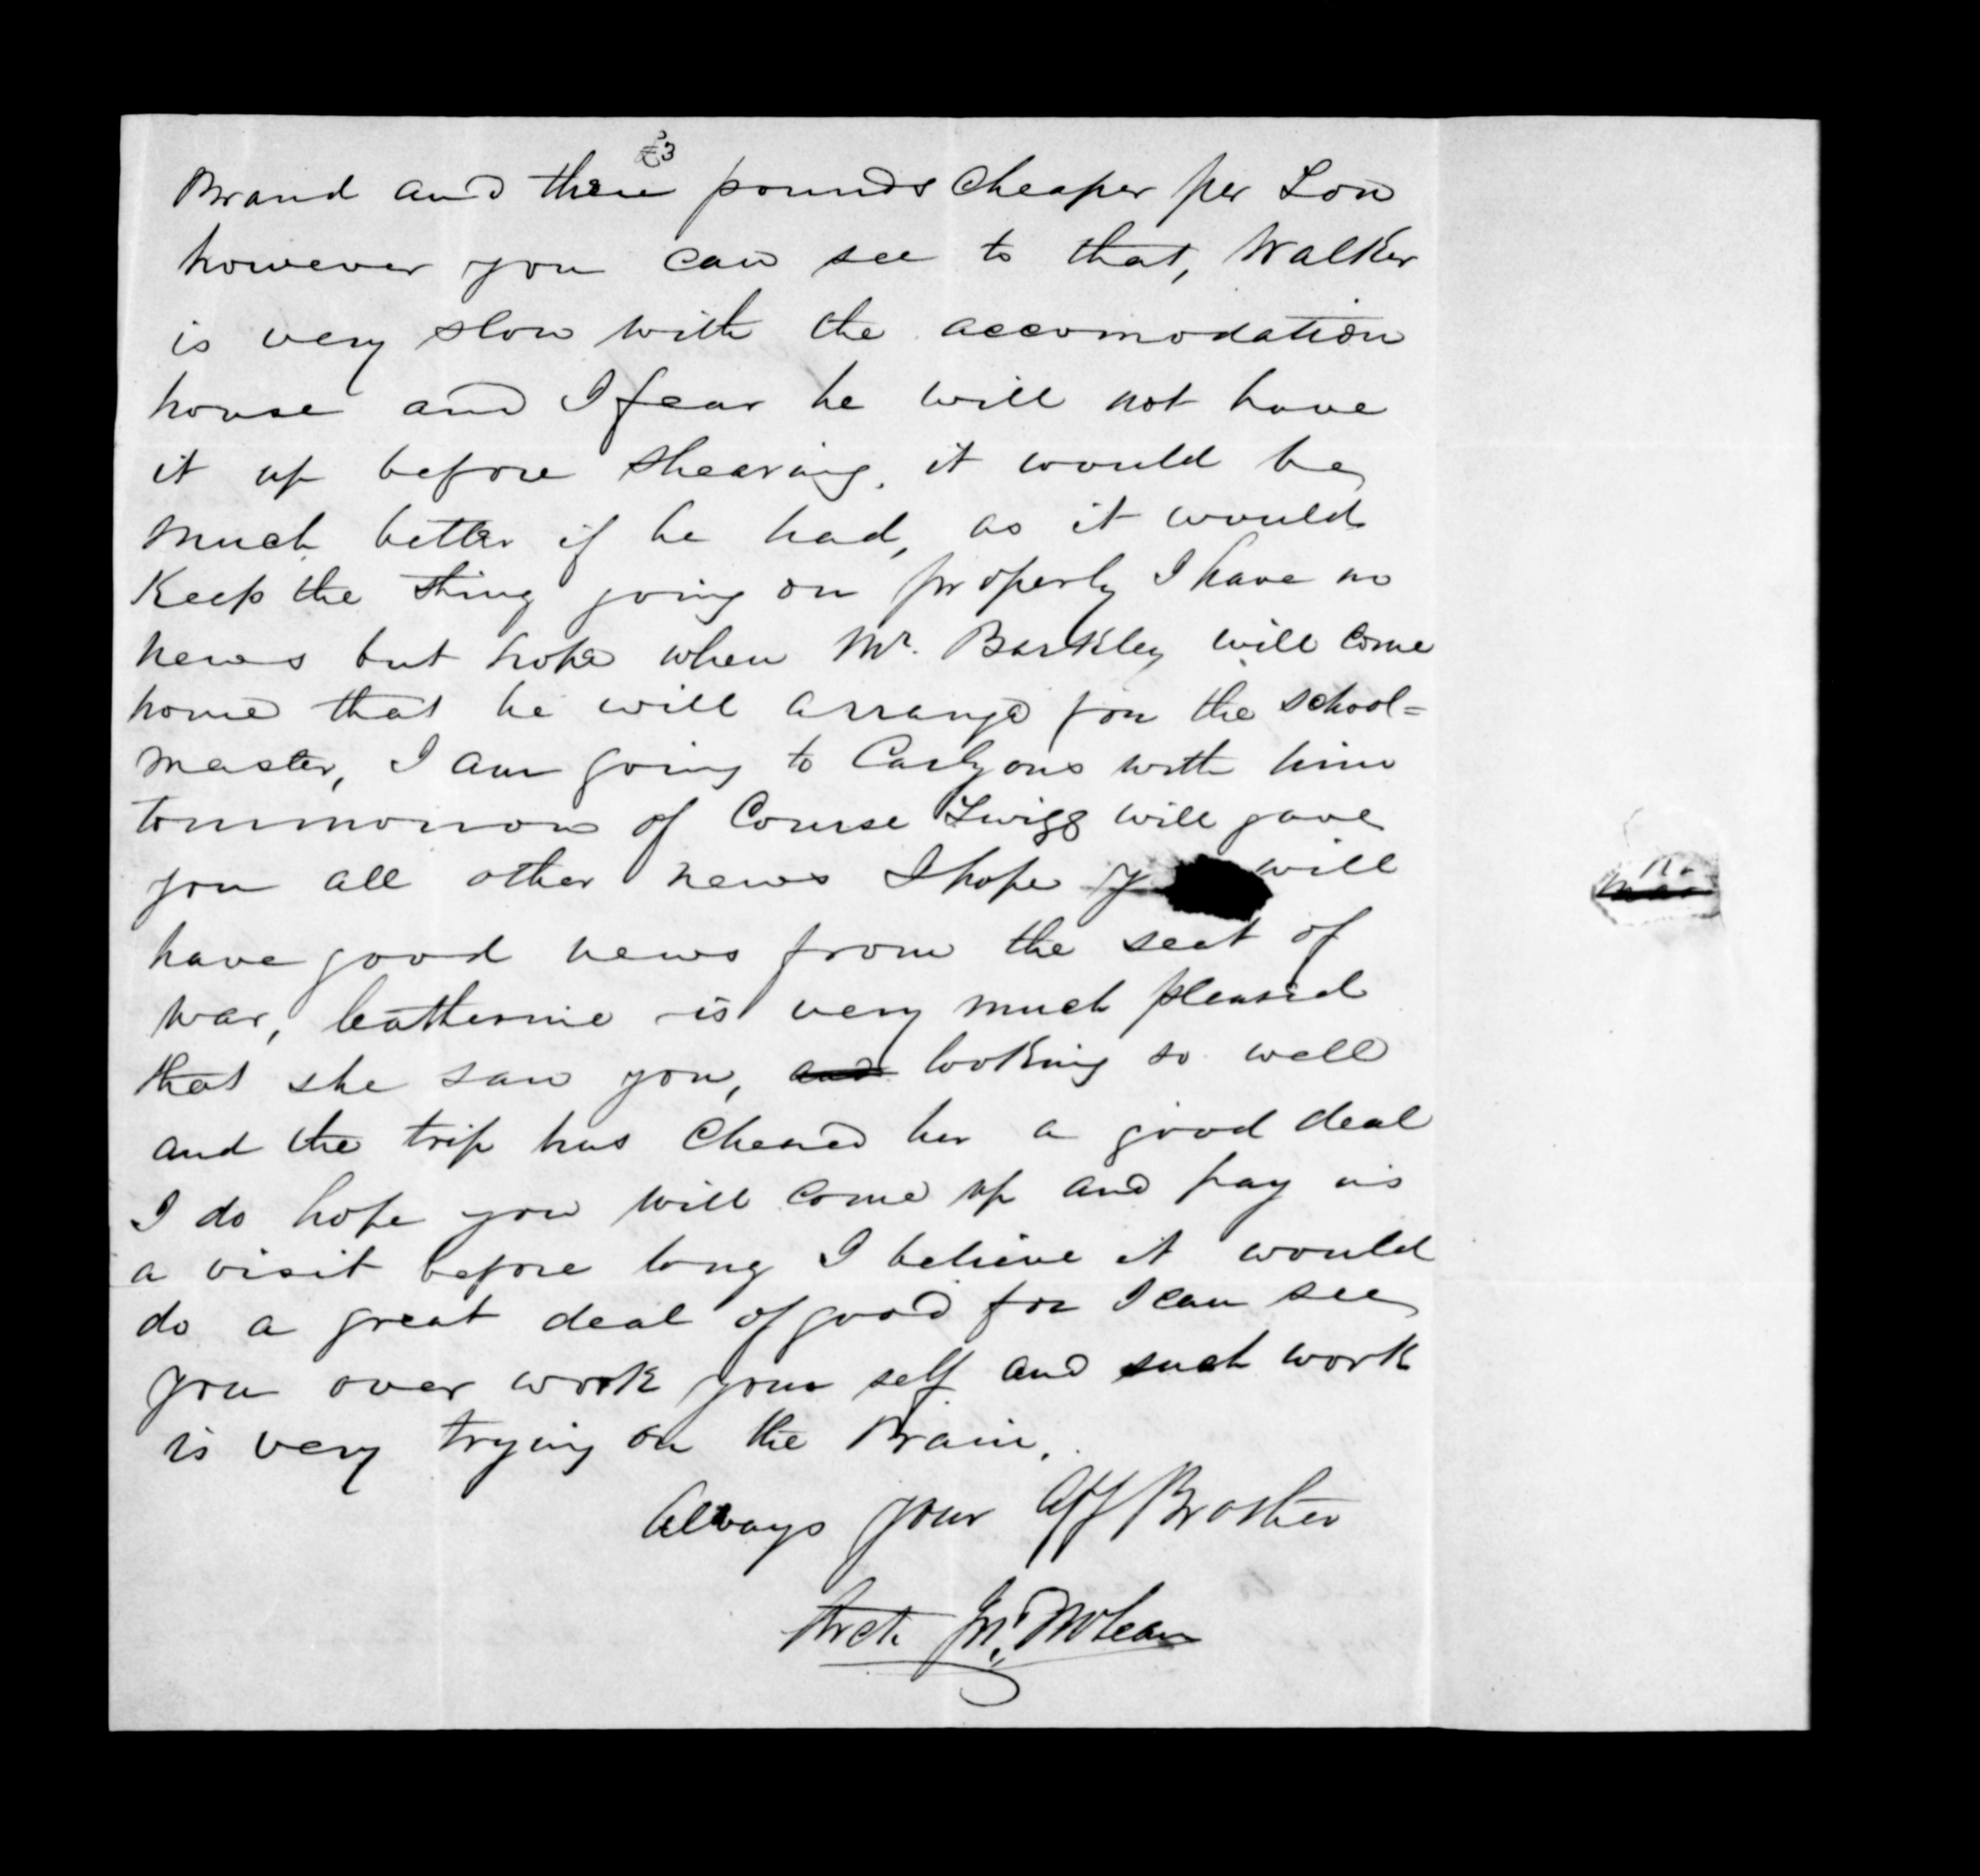 £3
Brand and three pounds cheaper per Ton
however you can see to that, Walker
is very slow with the accomodation
house and I fear he will not have
it up before shearing. it would be
much better if he had, as it would
Keep the thing going on properly I have no
news but hope when Mr. Barkley will come
home that he will arrange for the school=
master, I am going to Carlyons with him
tommorrow of Course Twigg will gave
you all other news I hope y will
have good news from the seat of
war, Catherine is very much pleased
that she saw you, and looking so well
and the trip has Cheared her a good deal
I do hope you will come up and pay us
a visit before long I believe it would
do a great deal of good for I can see
you over work your self and such work
is very trying on the Brain.
Always your Aff Brother
Arch Jn. McLean